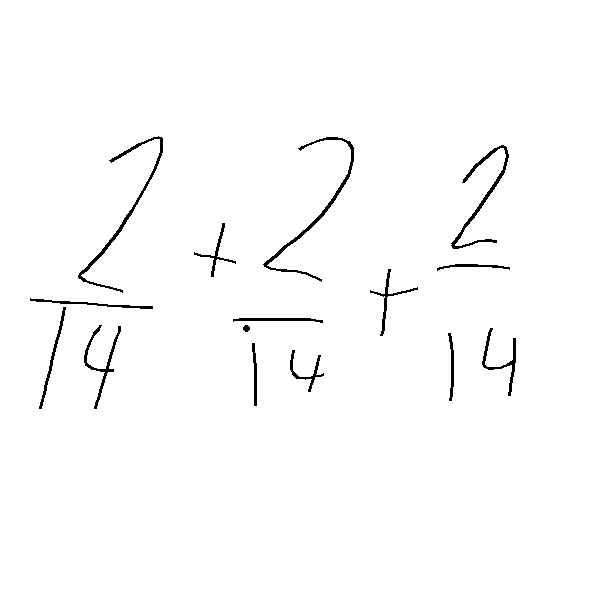 2/14 + 2/14 + 2/14